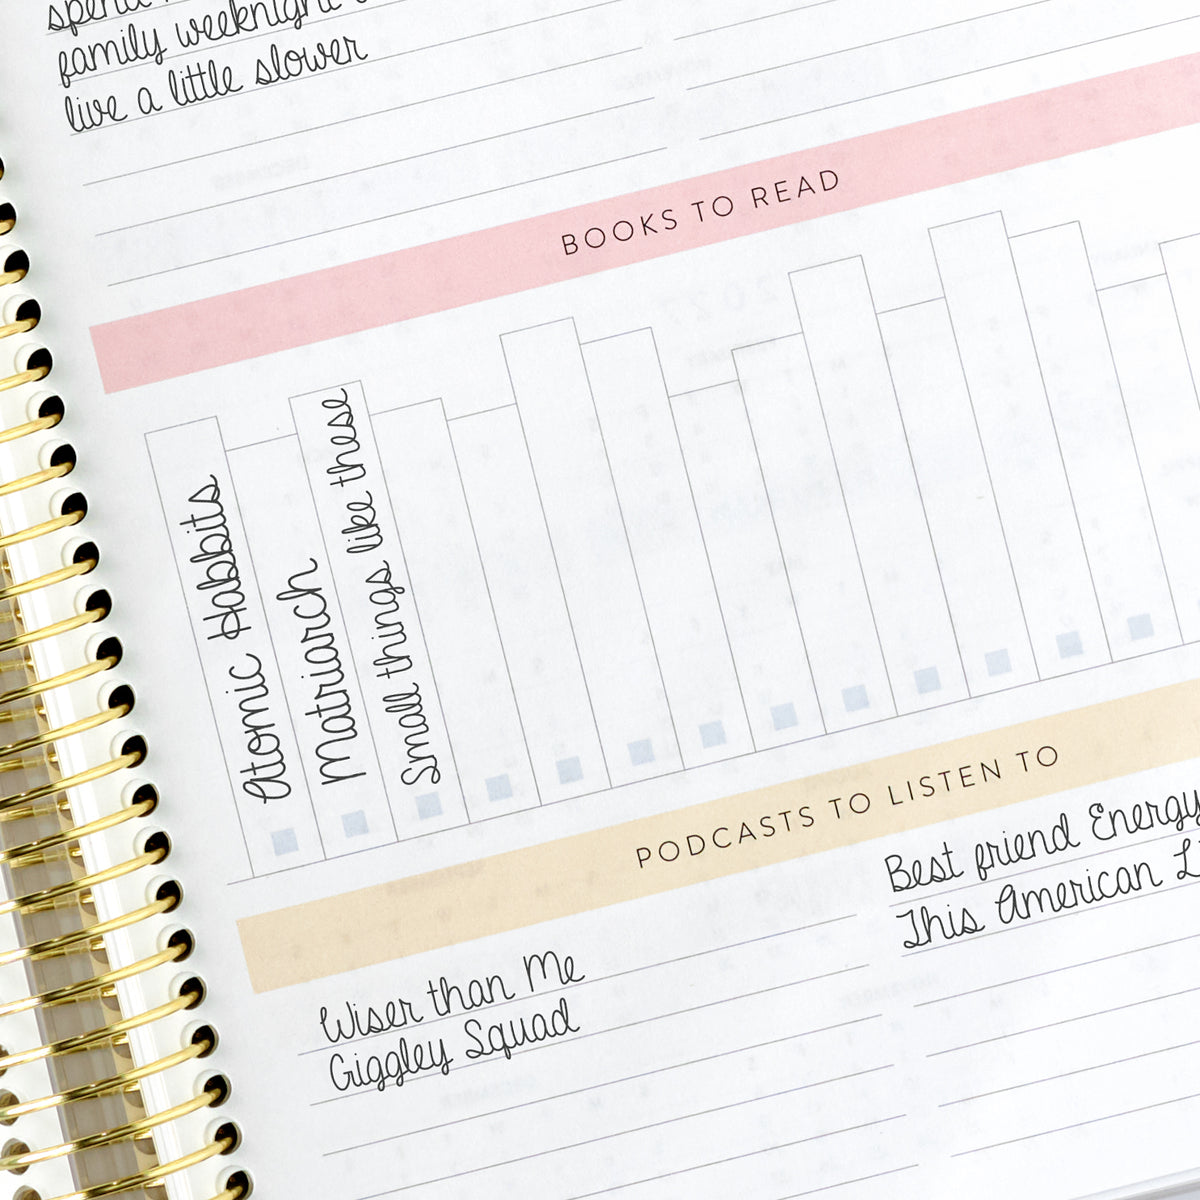 spend
family weeknight
live a little slower
BOOKS TO READ
Atomic Habbits
Matriarch
Small things like these
PODCASTS TO LISTEN TO
Wiser than Me
Giggley Squad
Best friend Energy
This American